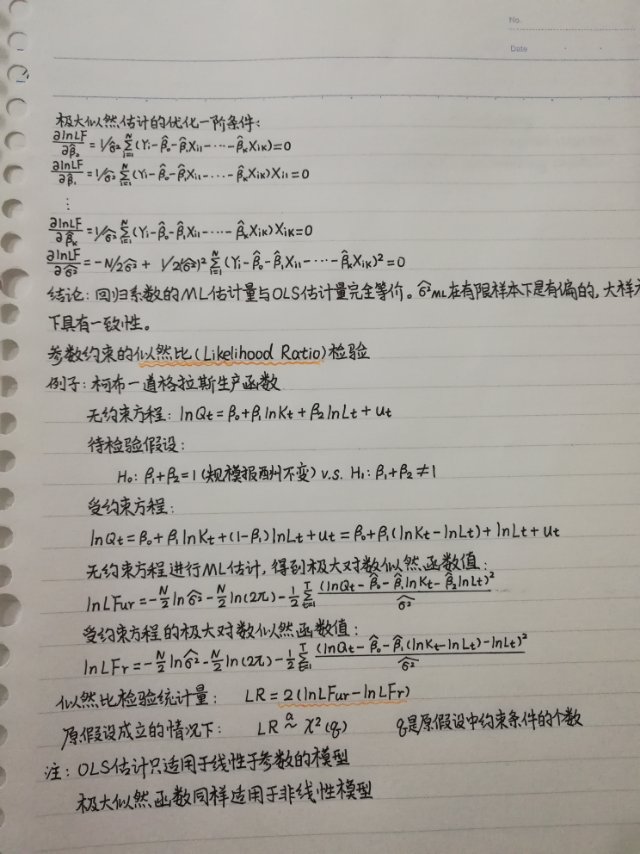 No.
Date
极大似然估计的优化一阶条件:
∂lnLF/∂β̂₀ = 1/σ̂² Σᵢ₌₁ᴺ (Yi-β̂₀-β̂₁Xi1-···-β̂ₖXiK)=0
∂lnLF/∂β̂₁ = 1/σ̂² Σᵢ₌₁ᴺ (Yi-β̂₀-β̂₁Xi1-···-β̂ₖXiK)Xi1=0
⋮
∂lnLF/∂β̂ₖ = 1/σ̂² Σᵢ₌₁ᴺ (Yi-β̂₀-β̂₁Xi1-···-β̂ₖXiK)XiK=0
∂lnLF/∂σ̂² = -N/2σ̂² + 1/2(σ̂²)² Σᵢ₌₁ᴺ (Yi-β̂₀-β̂₁Xi1-···-β̂ₖXiK)²=0
结论: 回归系数的ML估计量与OLS估计量完全等价。σ̂²ML在有限样本下是有偏的,大样
下具有一致性。
参数约束的似然比(Likelihood Ratio)检验
例子: 柯布一道格拉斯生产函数
无约束方程: lnQt=β₀+β₁lnKt+β₂lnLt+ut
待检验假设:
H₀: β₁+β₂=1(规模报酬不变) v.s. H₁: β₁+β₂≠1
受约束方程:
lnQt=β₀+β₁lnKt+(1-β₁)lnLt+ut=β₀+β₁(lnKt-lnLt)+lnLt+ut
无约束方程进行ML估计,得到极大对数似然函数值:
lnLFur=-N/2 lnσ̂²-N/2 ln(2π)-1/2 Σₜ₌₁ᵀ (lnQt-β̂₀-β̂₁lnKt-β̂₂lnLt)²/σ̂²
受约束方程的极大对数似然函数值:
lnLFr=-N/2 lnσ̂²-N/2 ln(2π)-1/2 Σₜ₌₁ᵀ (lnQt-β̂₀-β̂₁(lnKt-lnLt)-lnLt)²/σ̂²
似然比检验统计量: LR=2(lnLFur-lnLFr)
原假设成立的情况下: LR ~ᵃ χ²(q) q是原假设中约束条件的个数
注: OLS估计只适用于线性于参数的模型
极大似然函数同样适用于非线性模型